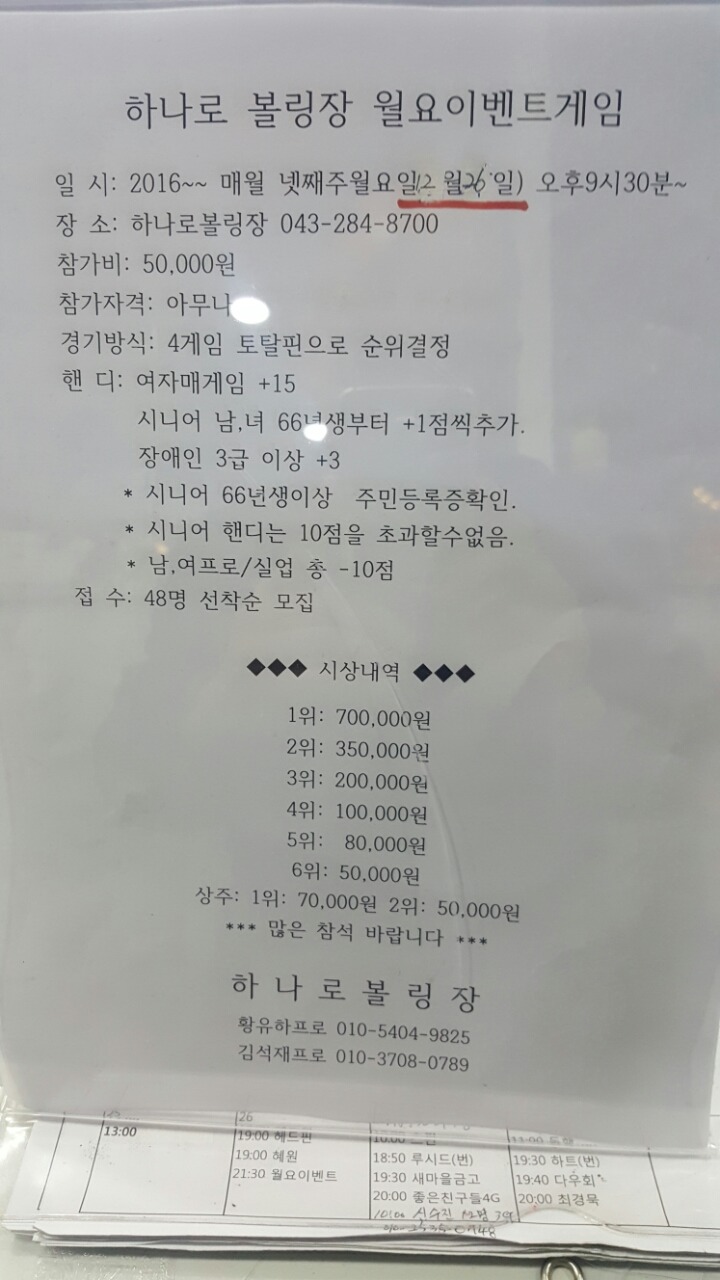 하나로 볼링장 월요이벤트게임
일 시: 2016~~ 매월 넷째주월요일(12월26일) 오후9시30분~
장 소: 하나로볼링장 043-284-8700
참가비: 50,000원
참가자격: 아무나
경기방식: 4게임 토탈핀으로 순위결정
핸 디: 여자매게임 +15
시니어 남,녀 66년생부터 +1점씩추가.
장애인 3급 이상 +3
* 시니어 66년생이상 주민등록증확인.
* 시니어 핸디는 10점을 초과할수없음.
* 남,여프로/실업 총 -10점
접 수: 48명 선착순 모집
◆◆◆ 시상내역 ◆◆◆
1위: 700,000원
2위: 350,000원
3위: 200,000원
4위: 100,000원
5위: 80,000원
6위: 50,000원
상주: 1위: 70,000원 2위: 50,000원
*** 많은 참석 바랍니다 ***
하 나 로 볼 링 장
황유하프로 010-5404-9825
김석재프로 010-3708-0789
26
13:00 19:00 헤드핀
19:00 혜원 18:50 루시드(번) 19:30 하트(번)
21:30 월요이벤트 19:30 새마을금고 19:40 다우회
20:00 좋은친구들4G 20:00 최경묵